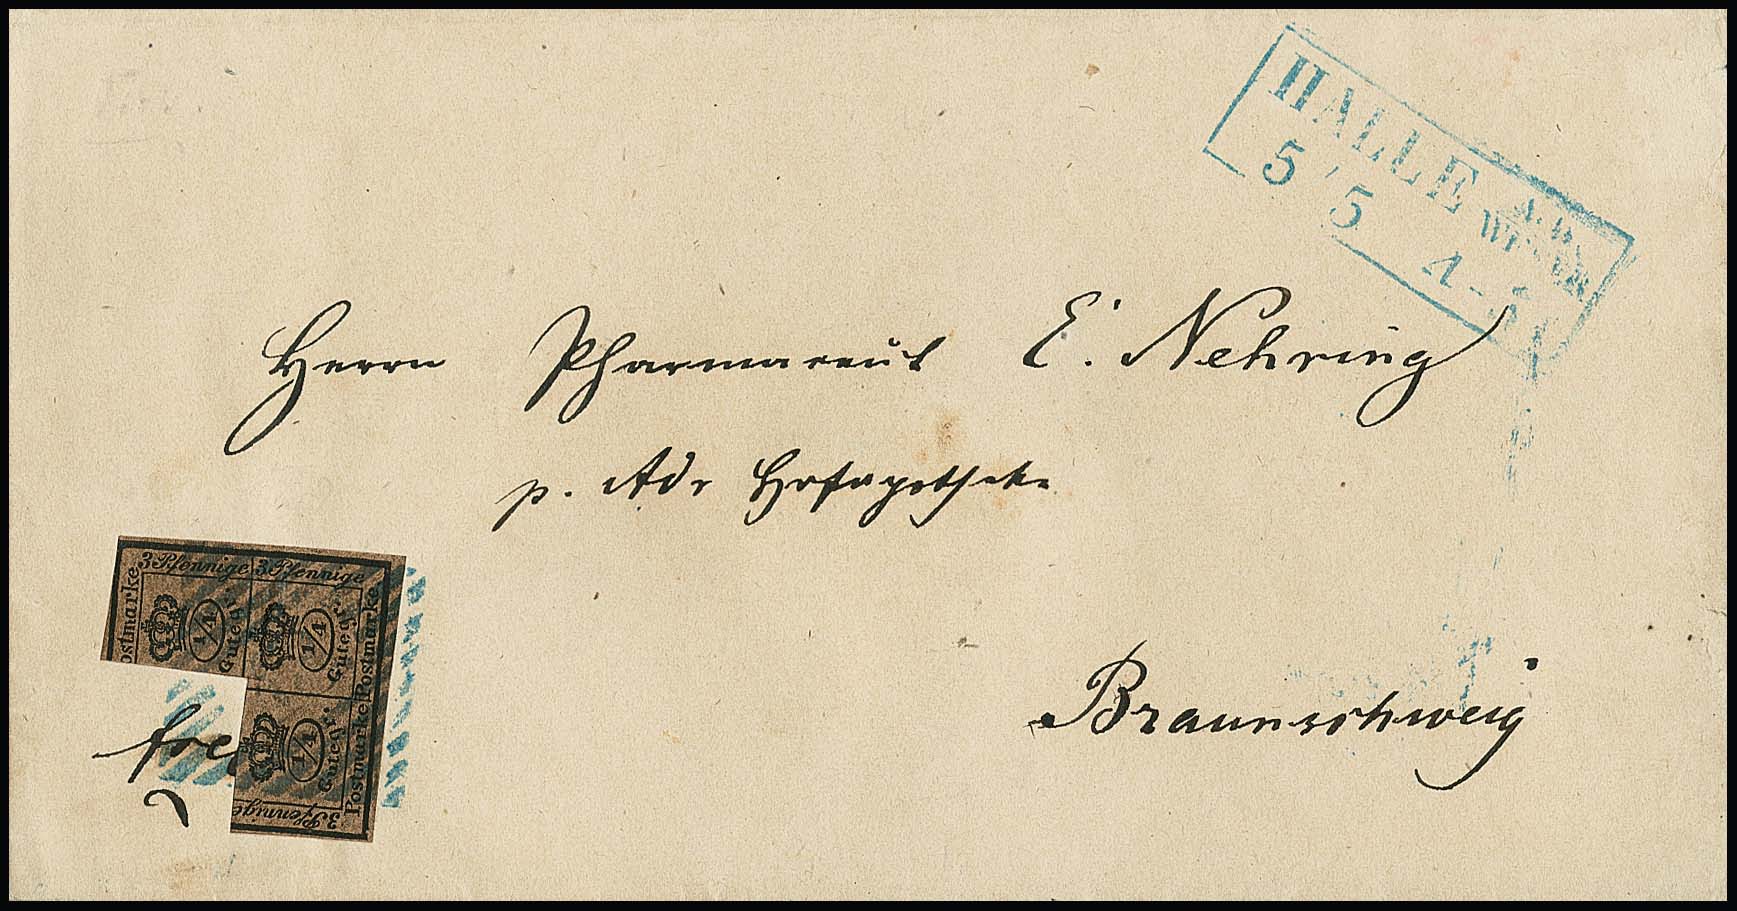 HALLE A. D. WESER
5 / 5 4-5
Herrn Pharmaceut E. Nehring
p. Adr Hofapotheke
Braunschweig
3 Pfennige 3 Pfennige
ostmarke
1/4 Gutegr.
1/4 Gutegr.
Postmarke
1/4 Gutegr.
Postmarke
3 Pfennige